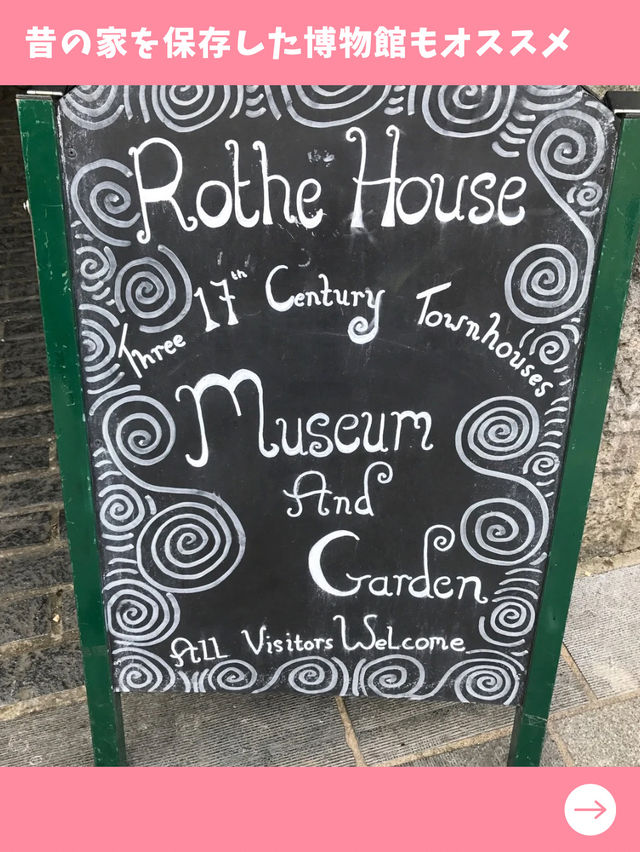 昔の家を保存した博物館もオススメ
Rothe House
Three 17th Century Townhouses
Museum
And
Garden
All Visitors Welcome